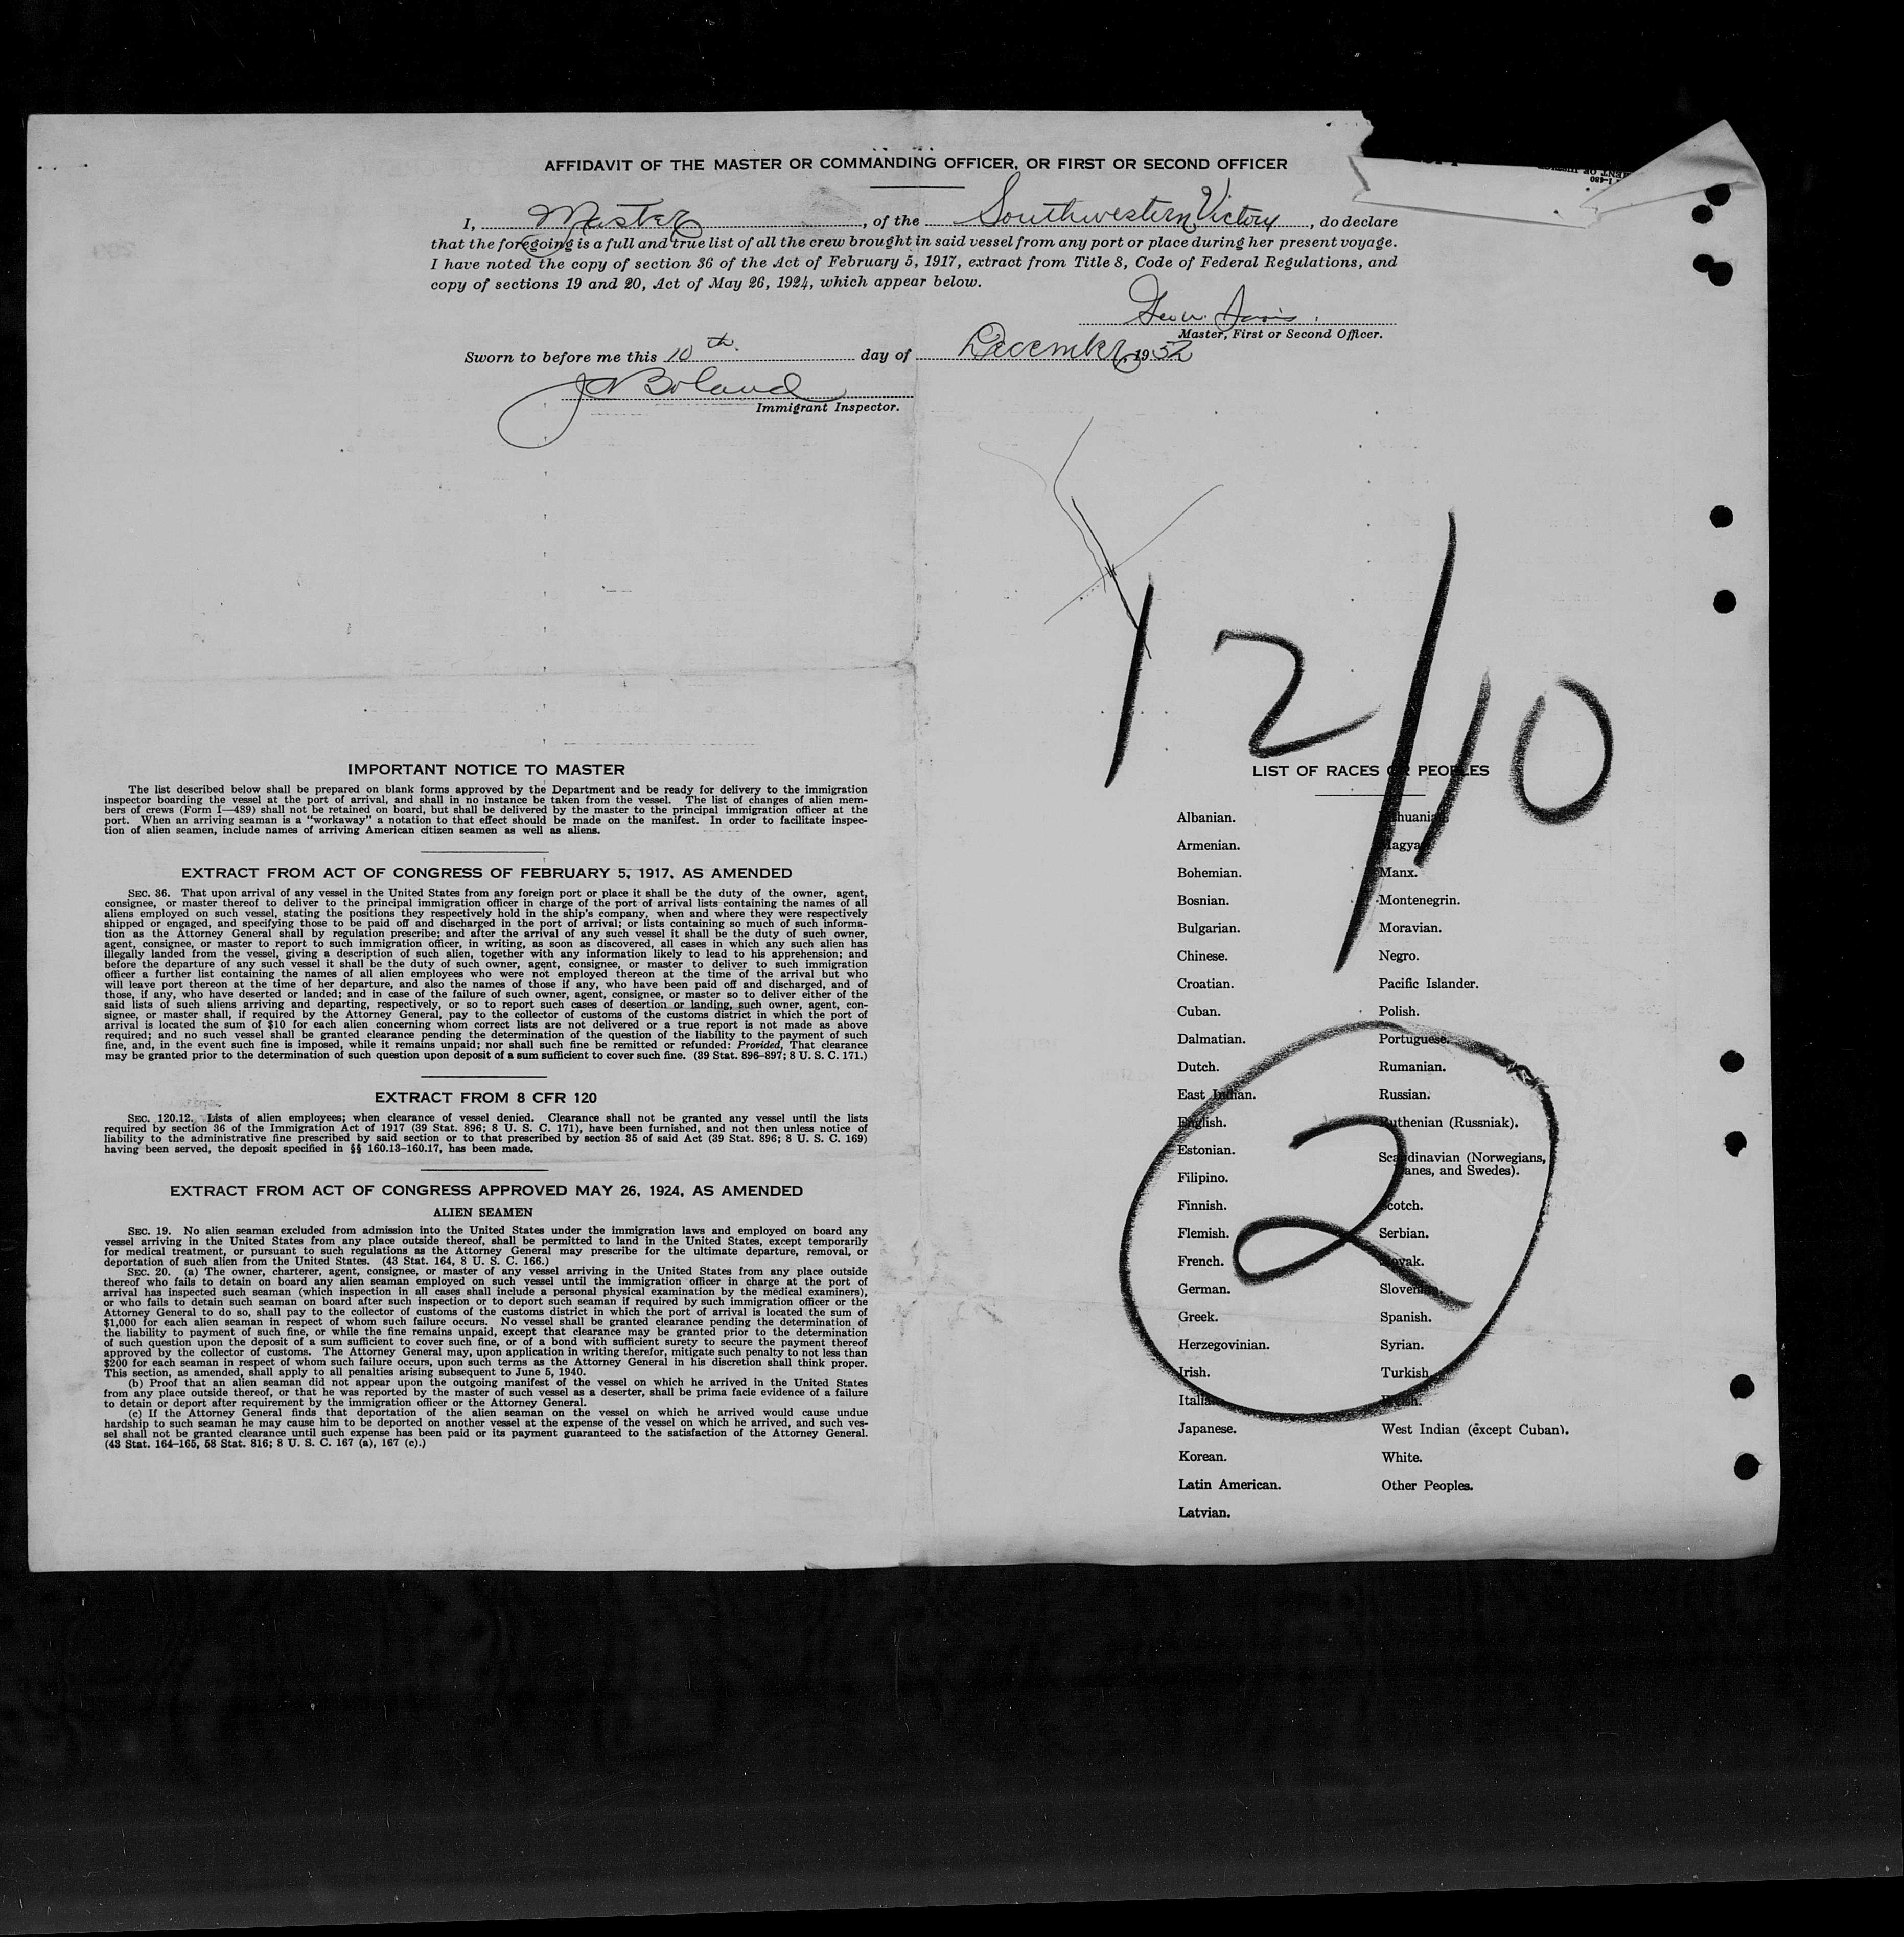 AFFIDAVIT OF THE MASTER OR COMMANDING OFFICER, OR FIRST OR SECOND OFFICER
I, Master, of the Southwestern Victory, do declare
that the foregoing is a full and true list of all the crew brought in said vessel from any port or place during her present voyage.
I have noted the copy of section 36 of the Act of February 5, 1917, extract from Title 8, Code of Federal Regulations, and
copy of sections 19 and 20, Act of May 26, 1924, which appear below.
Master, First or Second Officer.
Sworn to before me this 10th day of December, 1952
Boland
Immigrant Inspector.
12/10
IMPORTANT NOTICE TO MASTER
The list described below shall be prepared on blank forms approved by the Department and be ready for delivery to the immigration
inspector boarding the vessel at the port of arrival, and shall in no instance be taken from the vessel. The list of changes of alien mem-
bers of crews (Form I—489) shall not be retained on board, but shall be delivered by the master to the principal immigration officer at the
port. When an arriving seaman is a "workaway" a notation to that effect should be made on the manifest. In order to facilitate inspec-
tion of alien seamen, include names of arriving American citizen seamen as well as aliens.
EXTRACT FROM ACT OF CONGRESS OF FEBRUARY 5, 1917, AS AMENDED
SEC. 36. That upon arrival of any vessel in the United States from any foreign port or place it shall be the duty of the owner, agent,
consignee, or master thereof to deliver to the principal immigration officer in charge of the port of arrival lists containing the names of all
aliens employed on such vessel, stating the positions they respectively hold in the ship's company, when and where they were respectively
shipped or engaged, and specifying those to be paid off and discharged in the port of arrival; or lists containing so much of such informa-
tion as the Attorney General shall by regulation prescribe; and after the arrival of any such vessel it shall be the duty of such owner,
agent, consignee, or master to report to such immigration officer, in writing, as soon as discovered, all cases in which any such alien has
illegally landed from the vessel, giving a description of such alien, together with any information likely to lead to his apprehension; and
before the departure of any such vessel it shall be the duty of such owner, agent, consignee, or master to deliver to such immigration
officer a further list containing the names of all alien employees who were not employed thereon at the time of the arrival but who
will leave port thereon at the time of her departure, and also the names of those if any, who have been paid off and discharged, and of
those, if any, who have deserted or landed; and in case of the failure of such owner, agent, consignee, or master so to deliver either of the
said lists of such aliens arriving and departing, respectively, or so to report such cases of desertion or landing, such owner, agent, con-
signee, or master shall, if required by the Attorney General, pay to the collector of customs of the customs district in which the port of
arrival is located the sum of $10 for each alien concerning whom correct lists are not delivered or a true report is not made as above
required; and no such vessel shall be granted clearance pending the determination of the question of the liability to the payment of such
fine, and, in the event such fine is imposed, while it remains unpaid; nor shall such fine be remitted or refunded: Provided, That clearance
may be granted prior to the determination of such question upon deposit of a sum sufficient to cover such fine. (39 Stat. 896-897; 8 U. S. C. 171.)
EXTRACT FROM 8 CFR 120
SEC. 120.12. Lists of alien employees; when clearance of vessel denied. Clearance shall not be granted any vessel until the lists
required by section 36 of the Immigration Act of 1917 (39 Stat. 896; 8 U. S. C. 171), have been furnished, and not then unless notice of
liability to the administrative fine prescribed by said section or to that prescribed by section 35 of said Act (39 Stat. 896; 8 U. S. C. 169)
having been served, the deposit specified in §§ 160.13-160.17, has been made.
EXTRACT FROM ACT OF CONGRESS APPROVED MAY 26, 1924, AS AMENDED
ALIEN SEAMEN
SEC. 19. No alien seaman excluded from admission into the United States under the immigration laws and employed on board any
vessel arriving in the United States from any place outside thereof, shall be permitted to land in the United States, except temporarily
for medical treatment, or pursuant to such regulations as the Attorney General may prescribe for the ultimate departure, removal, or
deportation of such alien from the United States. (43 Stat. 164, 8 U. S. C. 166.)
SEC. 20. (a) The owner, charterer, agent, consignee, or master of any vessel arriving in the United States from any place outside
thereof who fails to detain on board any alien seaman employed on such vessel until the immigration officer in charge at the port of
arrival has inspected such seaman (which inspection in all cases shall include a personal physical examination by the medical examiners),
or who fails to detain such seaman on board after such inspection or to deport such seaman if required by such immigration officer or the
Attorney General to do so, shall pay to the collector of customs of the customs district in which the port of arrival is located the sum of
$1,000 for each alien seaman in respect of whom such failure occurs. No vessel shall be granted clearance pending the determination of
the liability to payment of such fine, or while the fine remains unpaid, except that clearance may be granted prior to the determination
of such question upon the deposit of a sum sufficient to cover such fine, or of a bond with sufficient surety to secure the payment thereof
approved by the collector of customs. The Attorney General may, upon application in writing therefor, mitigate such penalty to not less than
$200 for each seaman in respect of whom such failure occurs, upon such terms as the Attorney General in his discretion shall think proper.
This section, as amended, shall apply to all penalties arising subsequent to June 5, 1940.
(b) Proof that an alien seaman did not appear upon the outgoing manifest of the vessel on which he arrived in the United States
from any place outside thereof, or that he was reported by the master of such vessel as a deserter, shall be prima facie evidence of a failure
to detain or deport after requirement by the immigration officer or the Attorney General.
(c) If the Attorney General finds that deportation of the alien seaman on the vessel on which he arrived would cause undue
hardship to such seaman he may cause him to be deported on another vessel at the expense of the vessel on which he arrived, and such ves-
sel shall not be granted clearance until such expense has been paid or its payment guaranteed to the satisfaction of the Attorney General.
(43 Stat. 164-165, 58 Stat. 816; 8 U. S. C. 167 (a), 167 (c).)
LIST OF RACES OR PEOPLES
Albanian.
Armenian.
Bohemian.
Bosnian.
Bulgarian.
Chinese.
Croatian.
Cuban.
Dalmatian.
Dutch.
East Indian.
English.
Estonian.
Filipino.
Finnish.
Flemish.
French.
German.
Greek.
Herzegovinian.
Irish.
Italian.
Japanese.
Korean.
Latin American.
Latvian.
Lithuanian.
Magyar.
Manx.
Montenegrin.
Moravian.
Negro.
Pacific Islander.
Polish.
Portuguese.
Rumanian.
Russian.
Ruthenian (Russniak).
Scandinavian (Norwegians,
Danes, and Swedes).
Scotch.
Serbian.
Slovak.
Slovenian.
Spanish.
Syrian.
Turkish.
Welsh.
West Indian (except Cuban).
White.
Other Peoples.
2